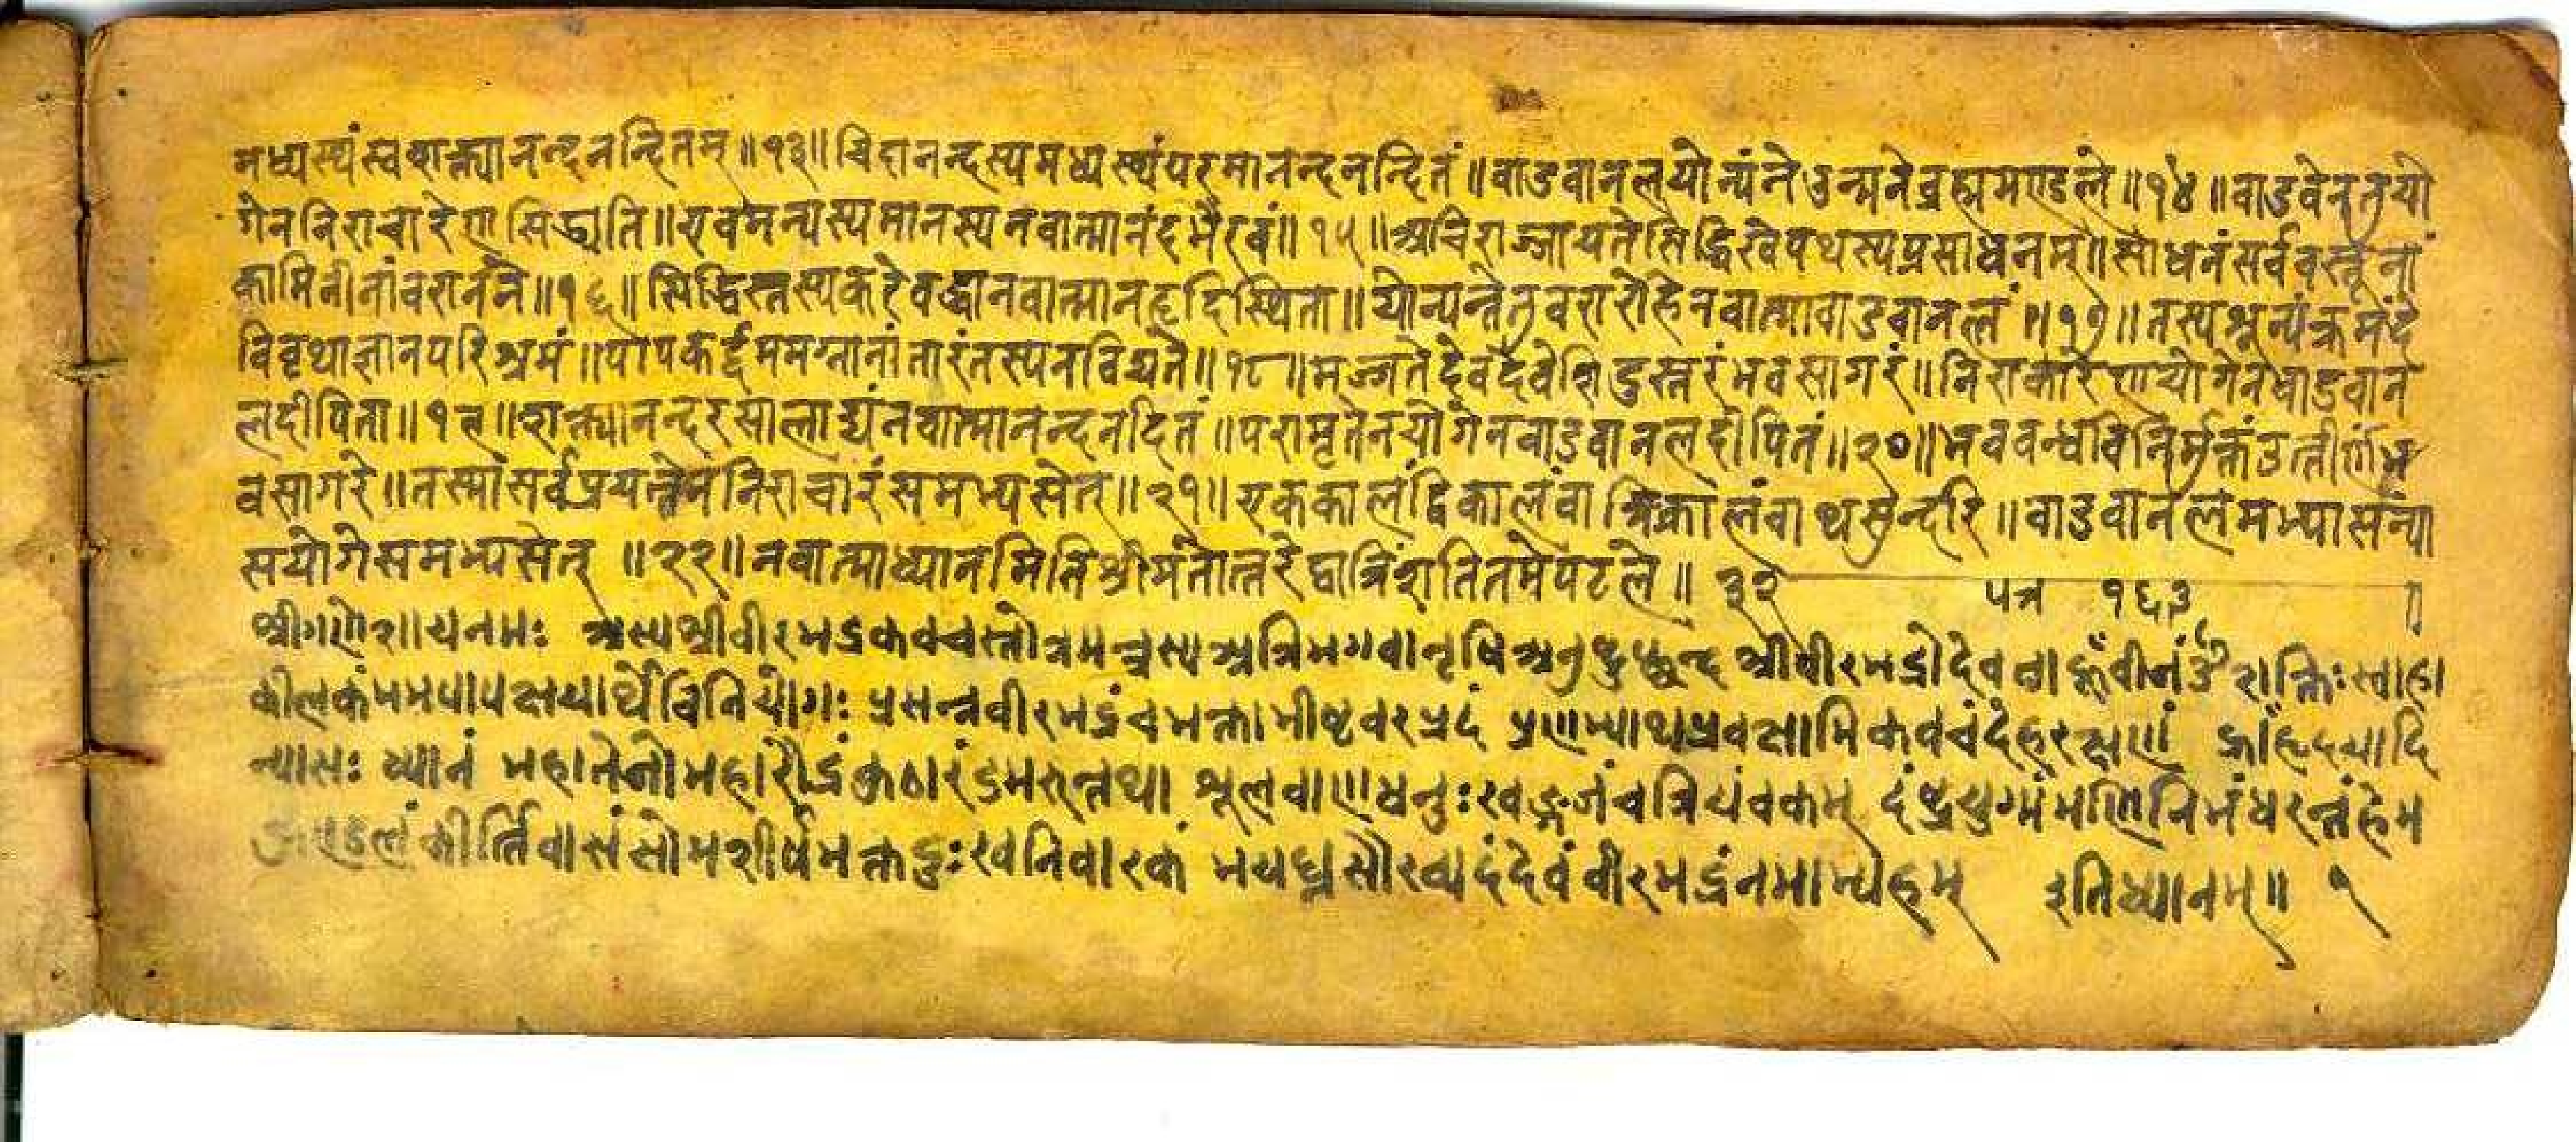 मध्यस्थंस्वशक्त्यानन्दनन्दितम्॥१३॥चिदानन्दस्यमध्यस्थंपरमानन्दनन्दितं॥वाडवानलयोन्यंनेउन्मनेब्रह्ममण्डले॥१४॥वाडवेनतुयो
गेननिराचारेणसिद्ध्यति॥एवमन्यस्यमानस्यनवात्मानंदभैरवं॥१५॥अचिराज्जायतेसिद्धिखेपथस्यप्रसाधनम्॥साधनंसर्ववस्तूनां
कामिनीनांवरानने॥१६॥सिद्धिस्तस्यकरेबद्धानवात्मानहृदिस्थिता॥योन्यन्तेतुवरारोहेनवात्मावाडवानलं॥१७॥तस्यशून्यंक्रमंदे
विवृथाज्ञानपरिश्रमं॥पापकर्द्दममग्नानांतारंतस्यनविद्यते॥१८॥मज्जतेदेवदेवेशिदुस्तरंभवसागरं॥निराकारेणयोगेनवाडवान
लदीपिता॥१९॥शक्त्यानन्दरसालाद्यंनवात्मानन्दनदितं॥परामृतेनयोगेनवाडवानलदीपितं॥२०॥भवबन्धविनिर्मुक्तंउत्तीर्णभ
वसागरे॥तस्मांसर्वप्रयत्नेननिराचारंसमभ्यसेत्॥२१॥एककालंद्विकालंवात्रिकालंवाथसुन्दरि॥वाडवानलमध्यासंन्या
सयोगेसमभ्यसेत्॥२२॥नवात्माध्यानमितिश्रीमंतोत्तरेद्वात्रिंशतितमेपटले॥३२ पत्र १६३
श्रीगणेशायनमः अस्यश्रीवीरभद्रकवचस्तोत्रमन्त्रस्यअत्रिभगवानृषिअनुष्टुप्छन्दश्रीवीरभद्रोदेवताह्रूंबीजंॐशक्तिःस्वाहा
कीलकंममपापक्षयार्थेविनियोगः प्रसन्नवीरभद्रंचभक्ताभीष्टवरप्रदं प्रणम्याथप्रवक्षामिकवचंदेहरक्षणं ह्रांहृदयादि
न्यासः ध्यानं महातेजोमहारौद्रंकुठारंडमरुन्तथा शूलवाणधनुःखड्गजंचत्रियंवकम् दंष्ट्रयुग्मंमणिनिभंधरन्तंहेम
कुण्डलं कीर्त्तिवासंसोमशीर्षभक्तदुःखनिवारकं भयघ्नसौख्यदंदेवंवीरभद्रंनमाम्यहम् इतिध्यानम्॥ १